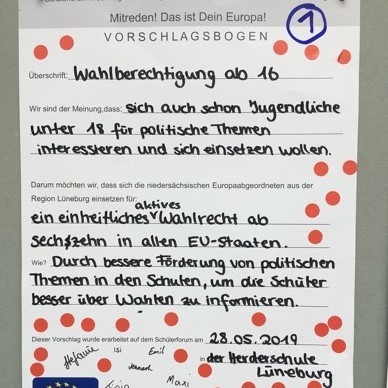 Mitreden! Das ist Dein Europa!
1
VORSCHLAGSBOGEN
Überschrift: Wahlberechtigung ab 16
Wir sind der Meinung, dass: sich auch schon Jugendliche
unter 18 für politische Themen
interessieren und sich einsetzen wollen.
Darum möchten wir, dass sich die niedersächsischen Europaabgeordneten aus der
Region Lüneburg einsetzen für:
aktives
ein einheitliches Wahlrecht ab
sechzehn in allen EU-Staaten.
Wie? Durch bessere Förderung von politischen
Themen in den Schulen, um die Schüler
besser über Wahlen zu informieren.
Dieser Vorschlag wurde erarbeitet auf dem Schülerforum am 28.05.2019
in der Herderschule
Lüneburg
Stefanie Isi Emil
Maxi